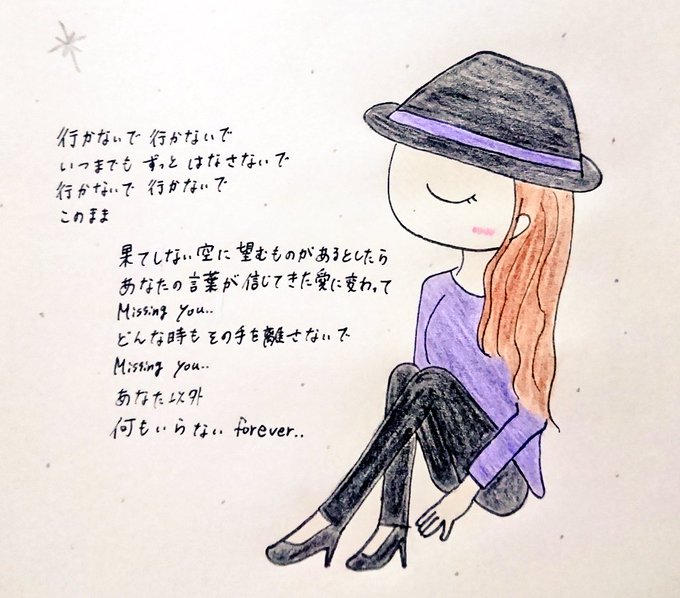 行かないで 行かないで
いつまでも ずっと はなさないで
行かないで 行かないで
このまま
果てしない空に望むものがあるとしたら
あなたの言葉が信じてきた愛に変わって
Missing you..
どんな時も その手を離さないで
Missing you..
あなた以外
何もいらない forever..